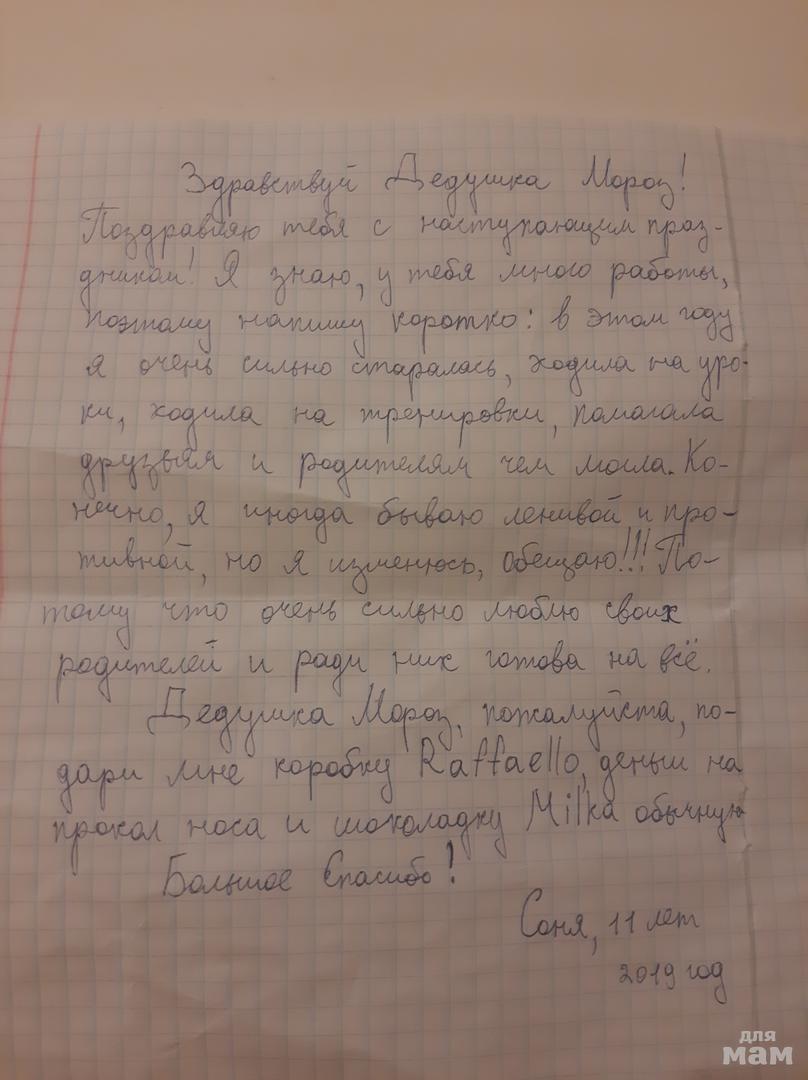 Здравствуй Дедушка Мороз!
Поздравляю тебя с наступающим праз-
дником! Я знаю, у тебя много работы,
поэтому напишу коротко: в этом году
я очень сильно старалась, ходила на уро-
ки, ходила на тренировки, памагала
друзьям и родителям чем могла. Ко-
нечно, я иногда бываю ленивой и про-
тивной, но я изменюсь, обещаю!!! По-
тому что очень сильно люблю своих
родителей и ради них готова на всё.
Дедушка Мороз, пожалуйста, по-
дари мне коробку Raffaello, деньги на
прокол носа и шоколадку Milka обычную
Большое Спасибо!
Соня, 11 лет
2019 год
для
мам